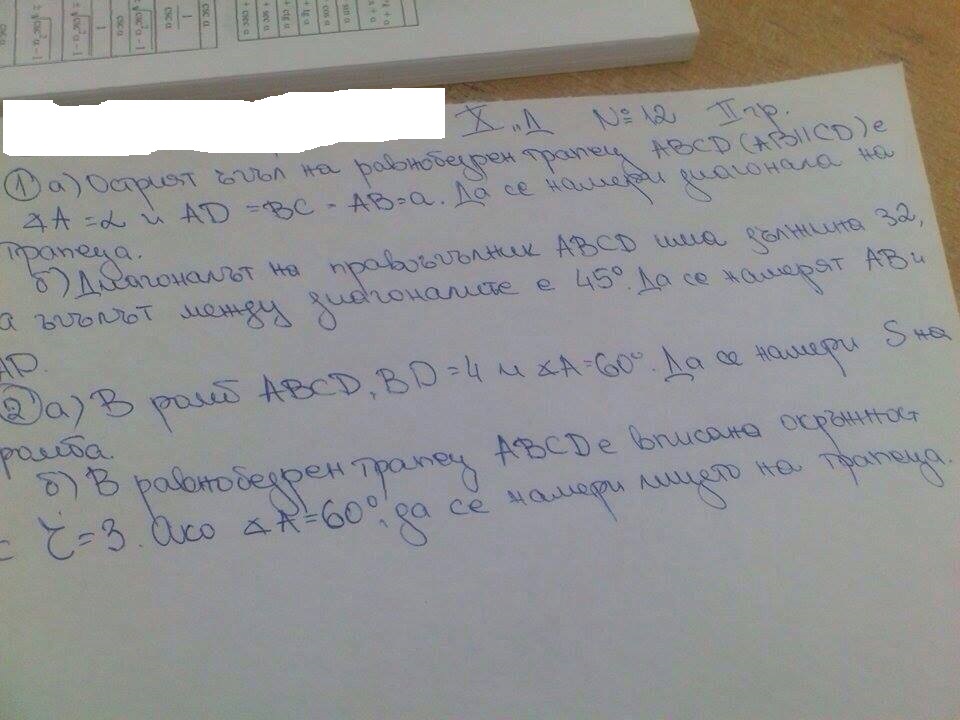 csc α
1
± √csc² α − 1
± √csc² α − 1
csc α
1
csc α
X "Д № 12 II гр.
① а) Острият ъгъл на равнобедрен трапец ABCD (AB||CD) е
∢A = α и AD = BC = AB = a. Да се намери диагонала на
трапеца.
б) Диагоналът на правоъгълник ABCD има дължина 32,
а ъгълът между диагоналите е 45°. Да се намерят AB и
AD.
② а) В ромб ABCD, BD = 4 и ∢A = 60°. Да се намери S на
ромба.
б) В равнобедрен трапец ABCD е вписана окръжност
с r = 3. Ако ∢A = 60°, да се намери лицето на трапеца.